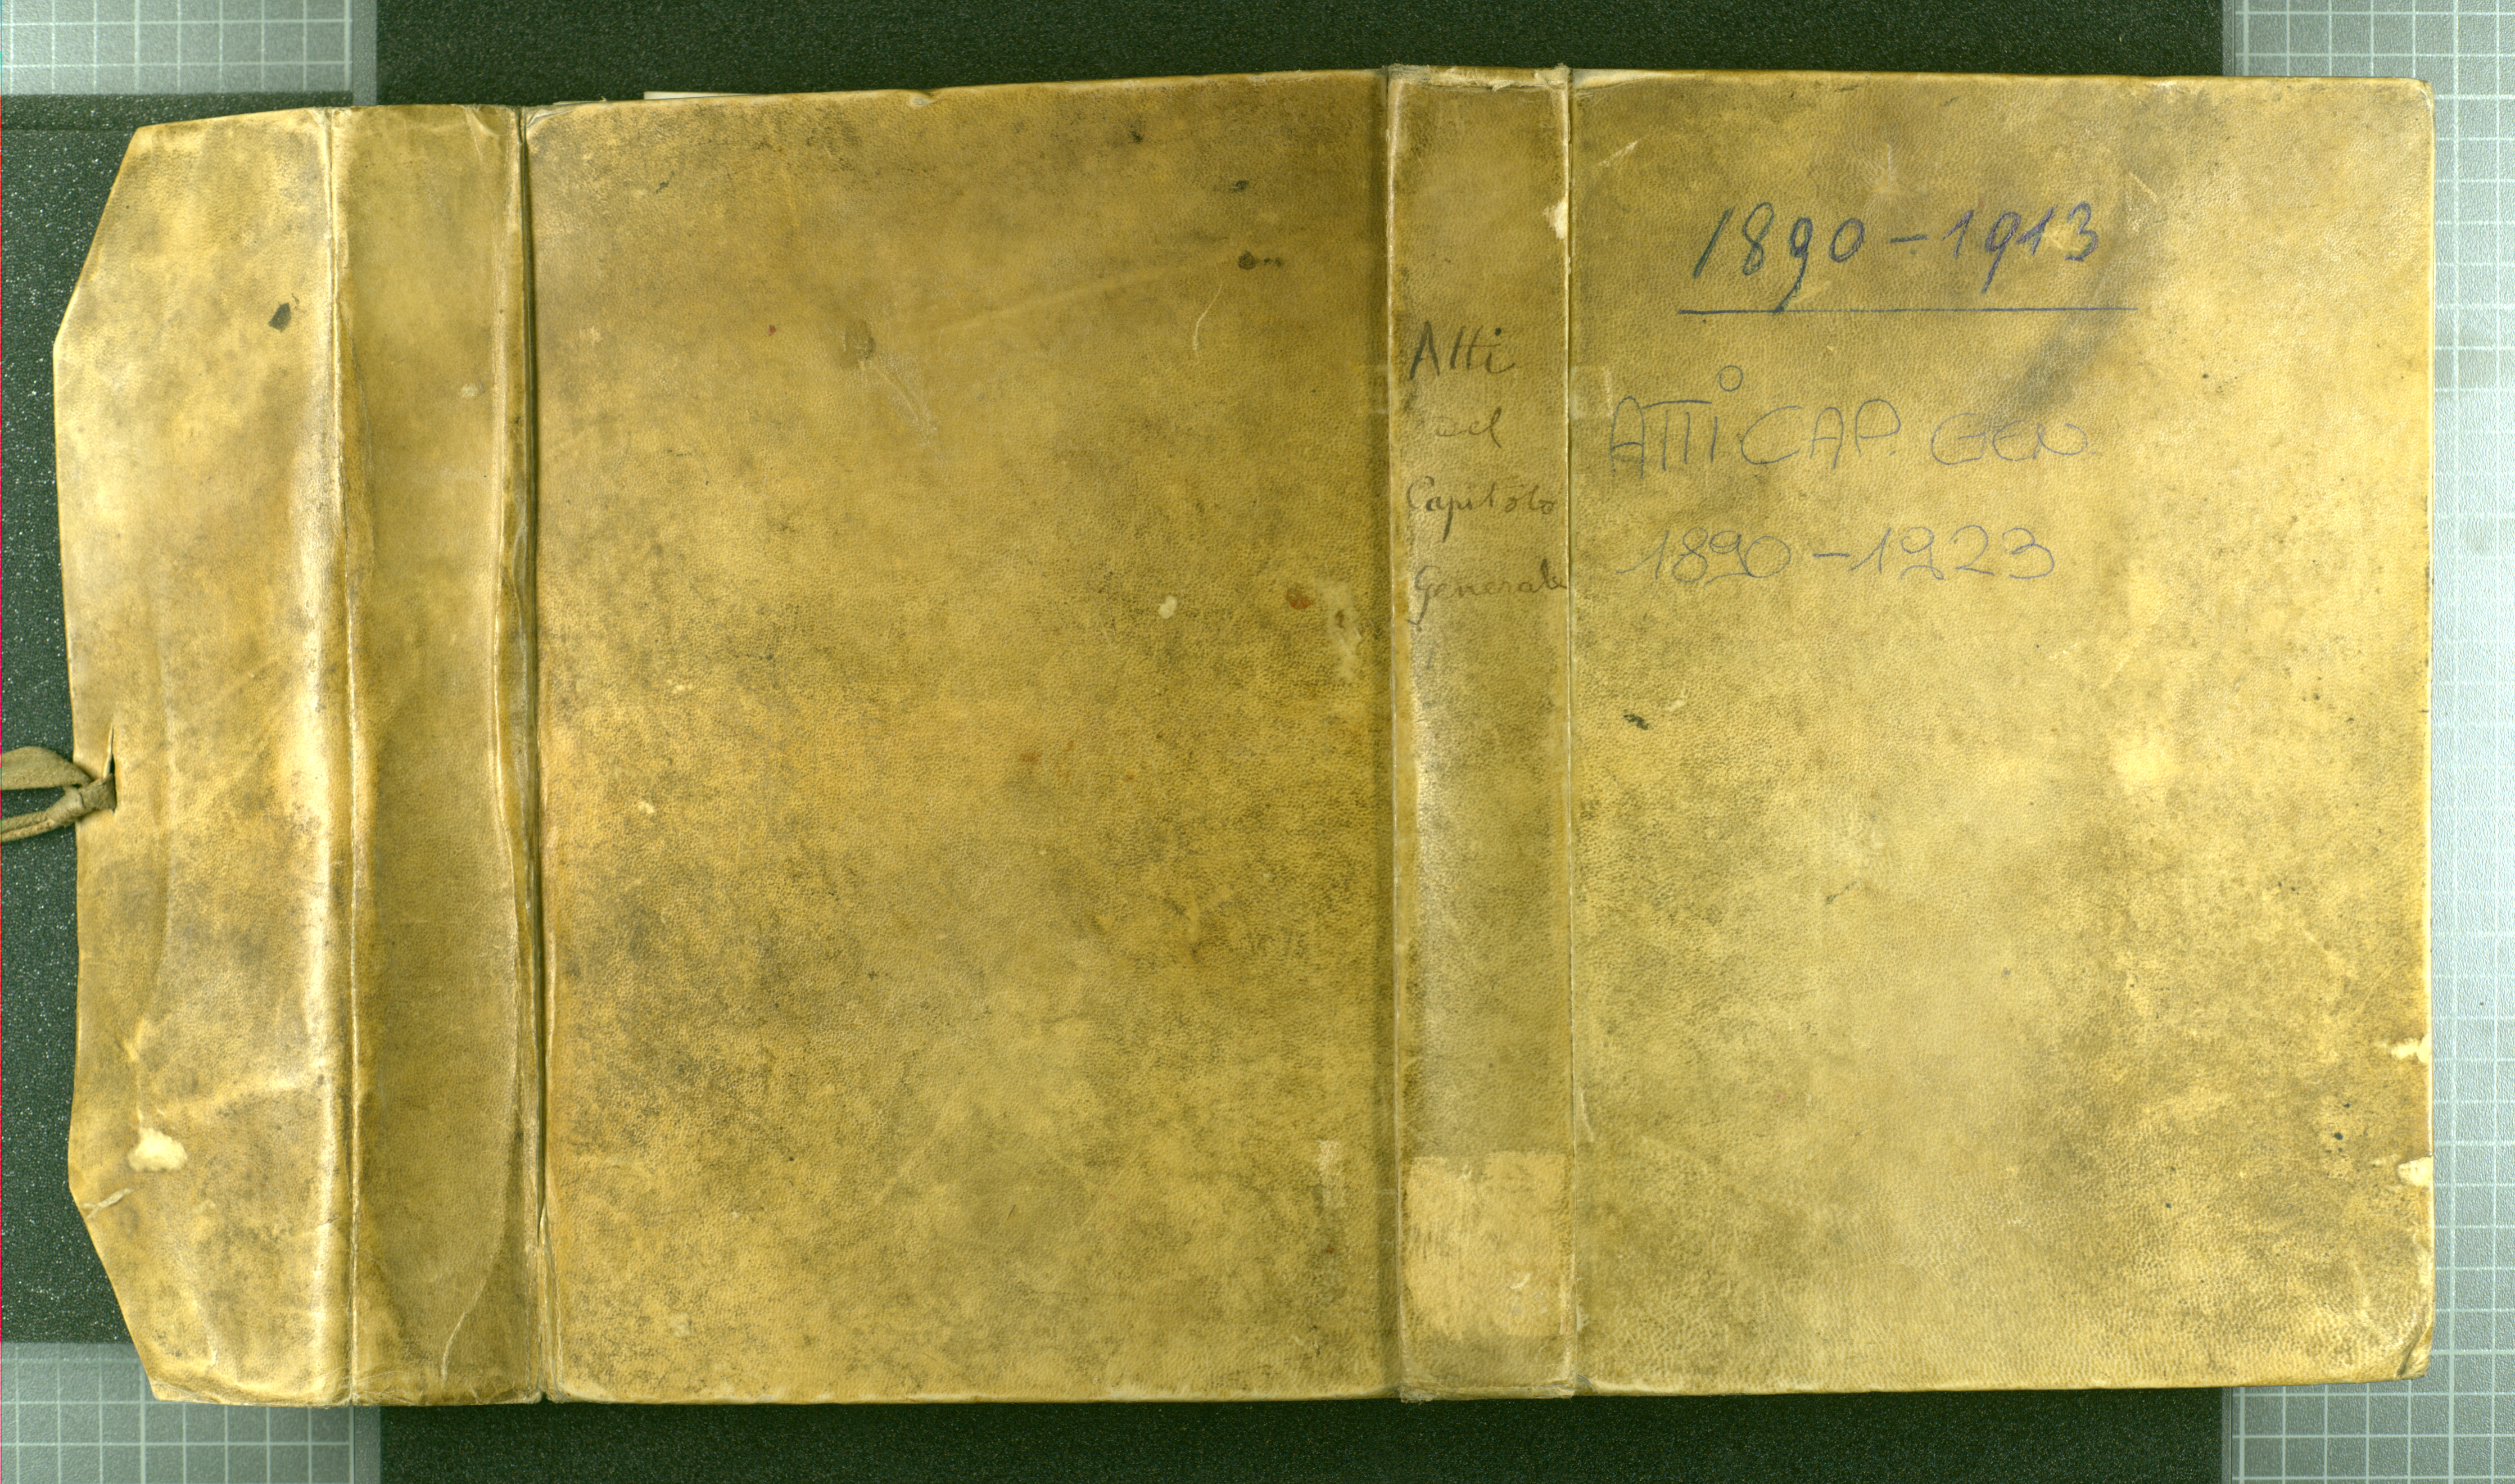 Atti
del
Capitolo
Generale
1890-1913
ATTI CAP. GEN
1890-1923